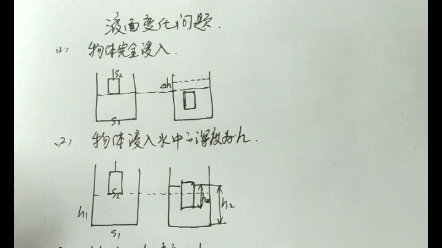 液面变化问题.
(1) 物体完全浸入.
S2
Δh
S1
(2) 物体浸入水中的深度为h.
S2
h1
h2
S1